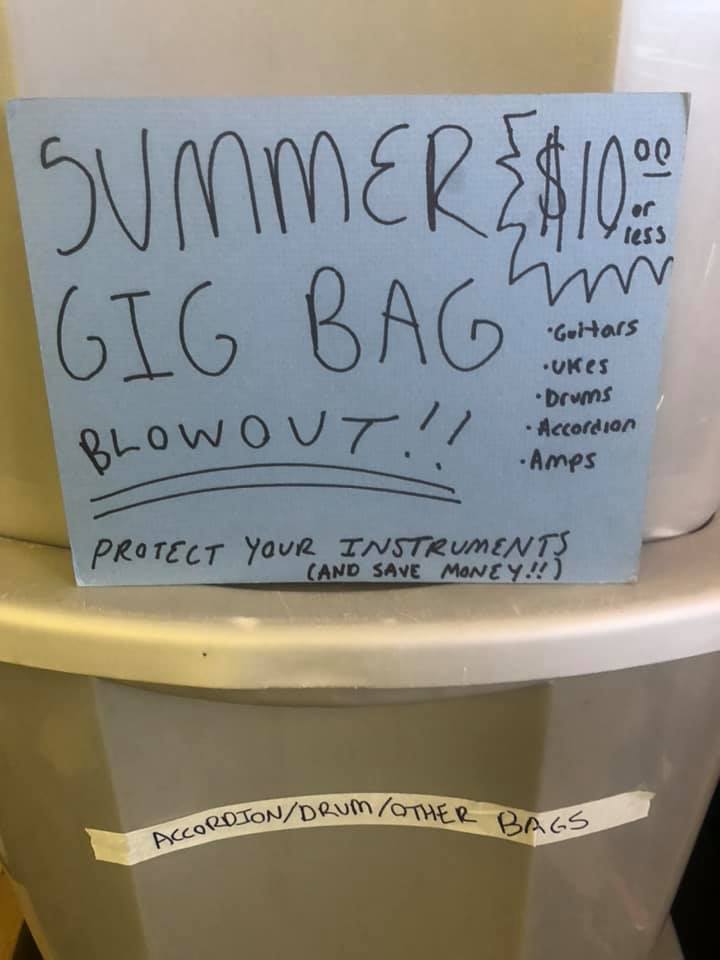 SUMMER
$10.00
or
less
GIG BAG
BLOWOUT!!
•Guitars
•UKes
•Drums
•Accordion
•Amps
PROTECT YOUR INSTRUMENTS
(AND SAVE MONEY!!)
ACCORDION/DRUM/OTHER BAGS